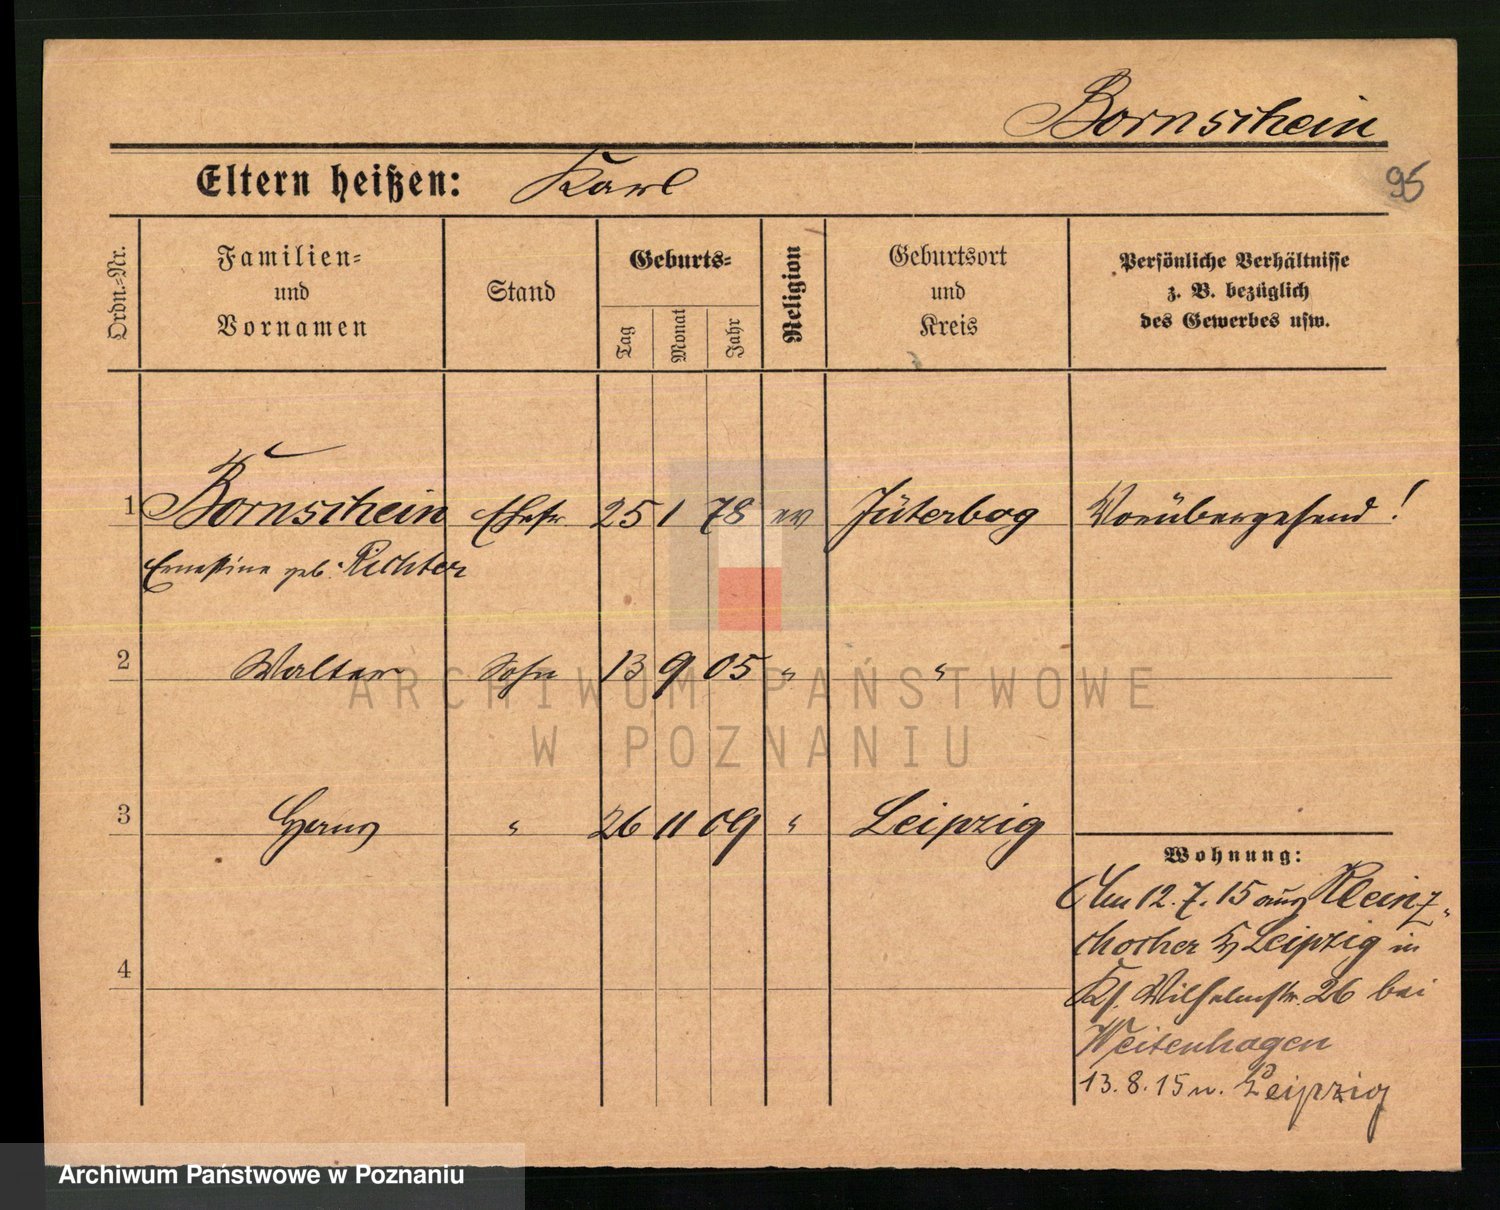 Bornschein
Eltern heißen: Karl
95
Ordn.-Nr.
Familien-
und
Vornamen
Stand
Geburts-
Tag
Monat
Jahr
Religion
Geburtsort
und
Kreis
Persönliche Verhältnisse
z. B. bezüglich
des Gewerbes usw.
1 Bornschein Ehefr 25 1 78 ev Jüterbog Vorübergehend!
Ernestine geb. Richter
2 Walter Sohn 13 9 05 " "
ARCHIWUM PAŃSTWOWE
W POZNANIU
3 " 26 11 09 " Leipzig
Wohnung:
Am 12.7.15 aus Kleinz-
schocher b/ Leipzig in
Ks. Wilhelmstr. 26 bei
Weitenhagen
4
13.8.15 n. Leipzig
Archiwum Państwowe w Poznaniu